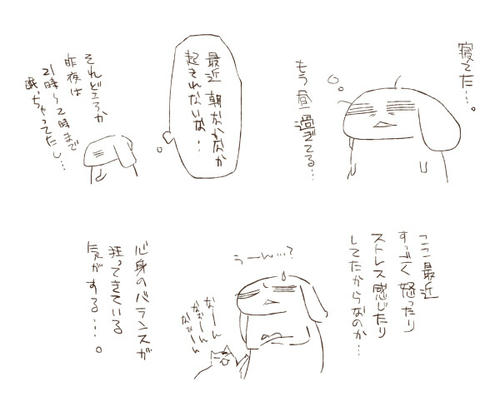 寝てた…。
もう昼過ぎてる…
最近 朝なかなか
起きれないな…
それどころか
昨夜は
21時〜2時まで
眠っちゃってたし…
ここ最近
すっごく怒ったり
ストレス感じたり
してたからなのか…
うーん…?
なーん
なぉーん
なぉーん
心身のバランスが
狂ってきている
気がする…。